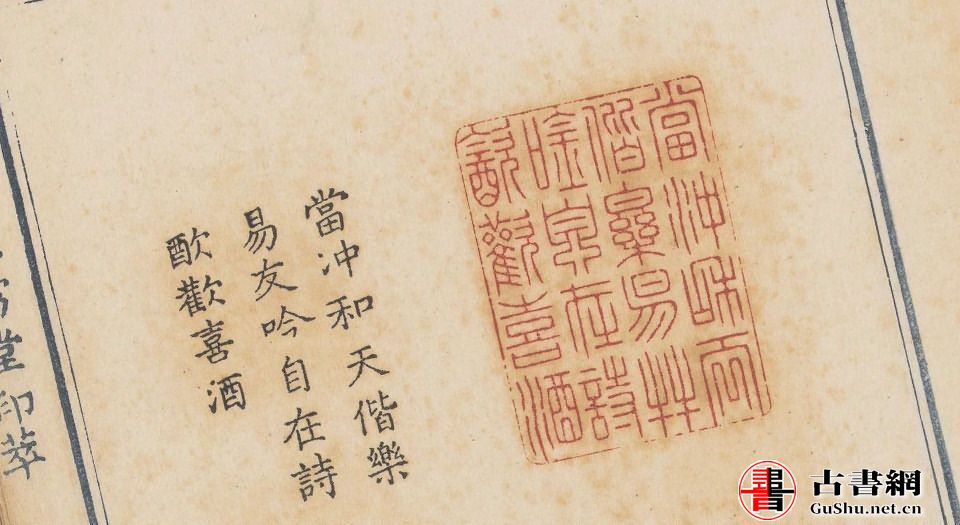 當冲和天
偕樂易友
吟自在詩
㱃歡喜酒
當冲和天偕樂
易友吟自在詩
㱃歡喜酒
堂印萃
書
古書網
GuShu.net.cn